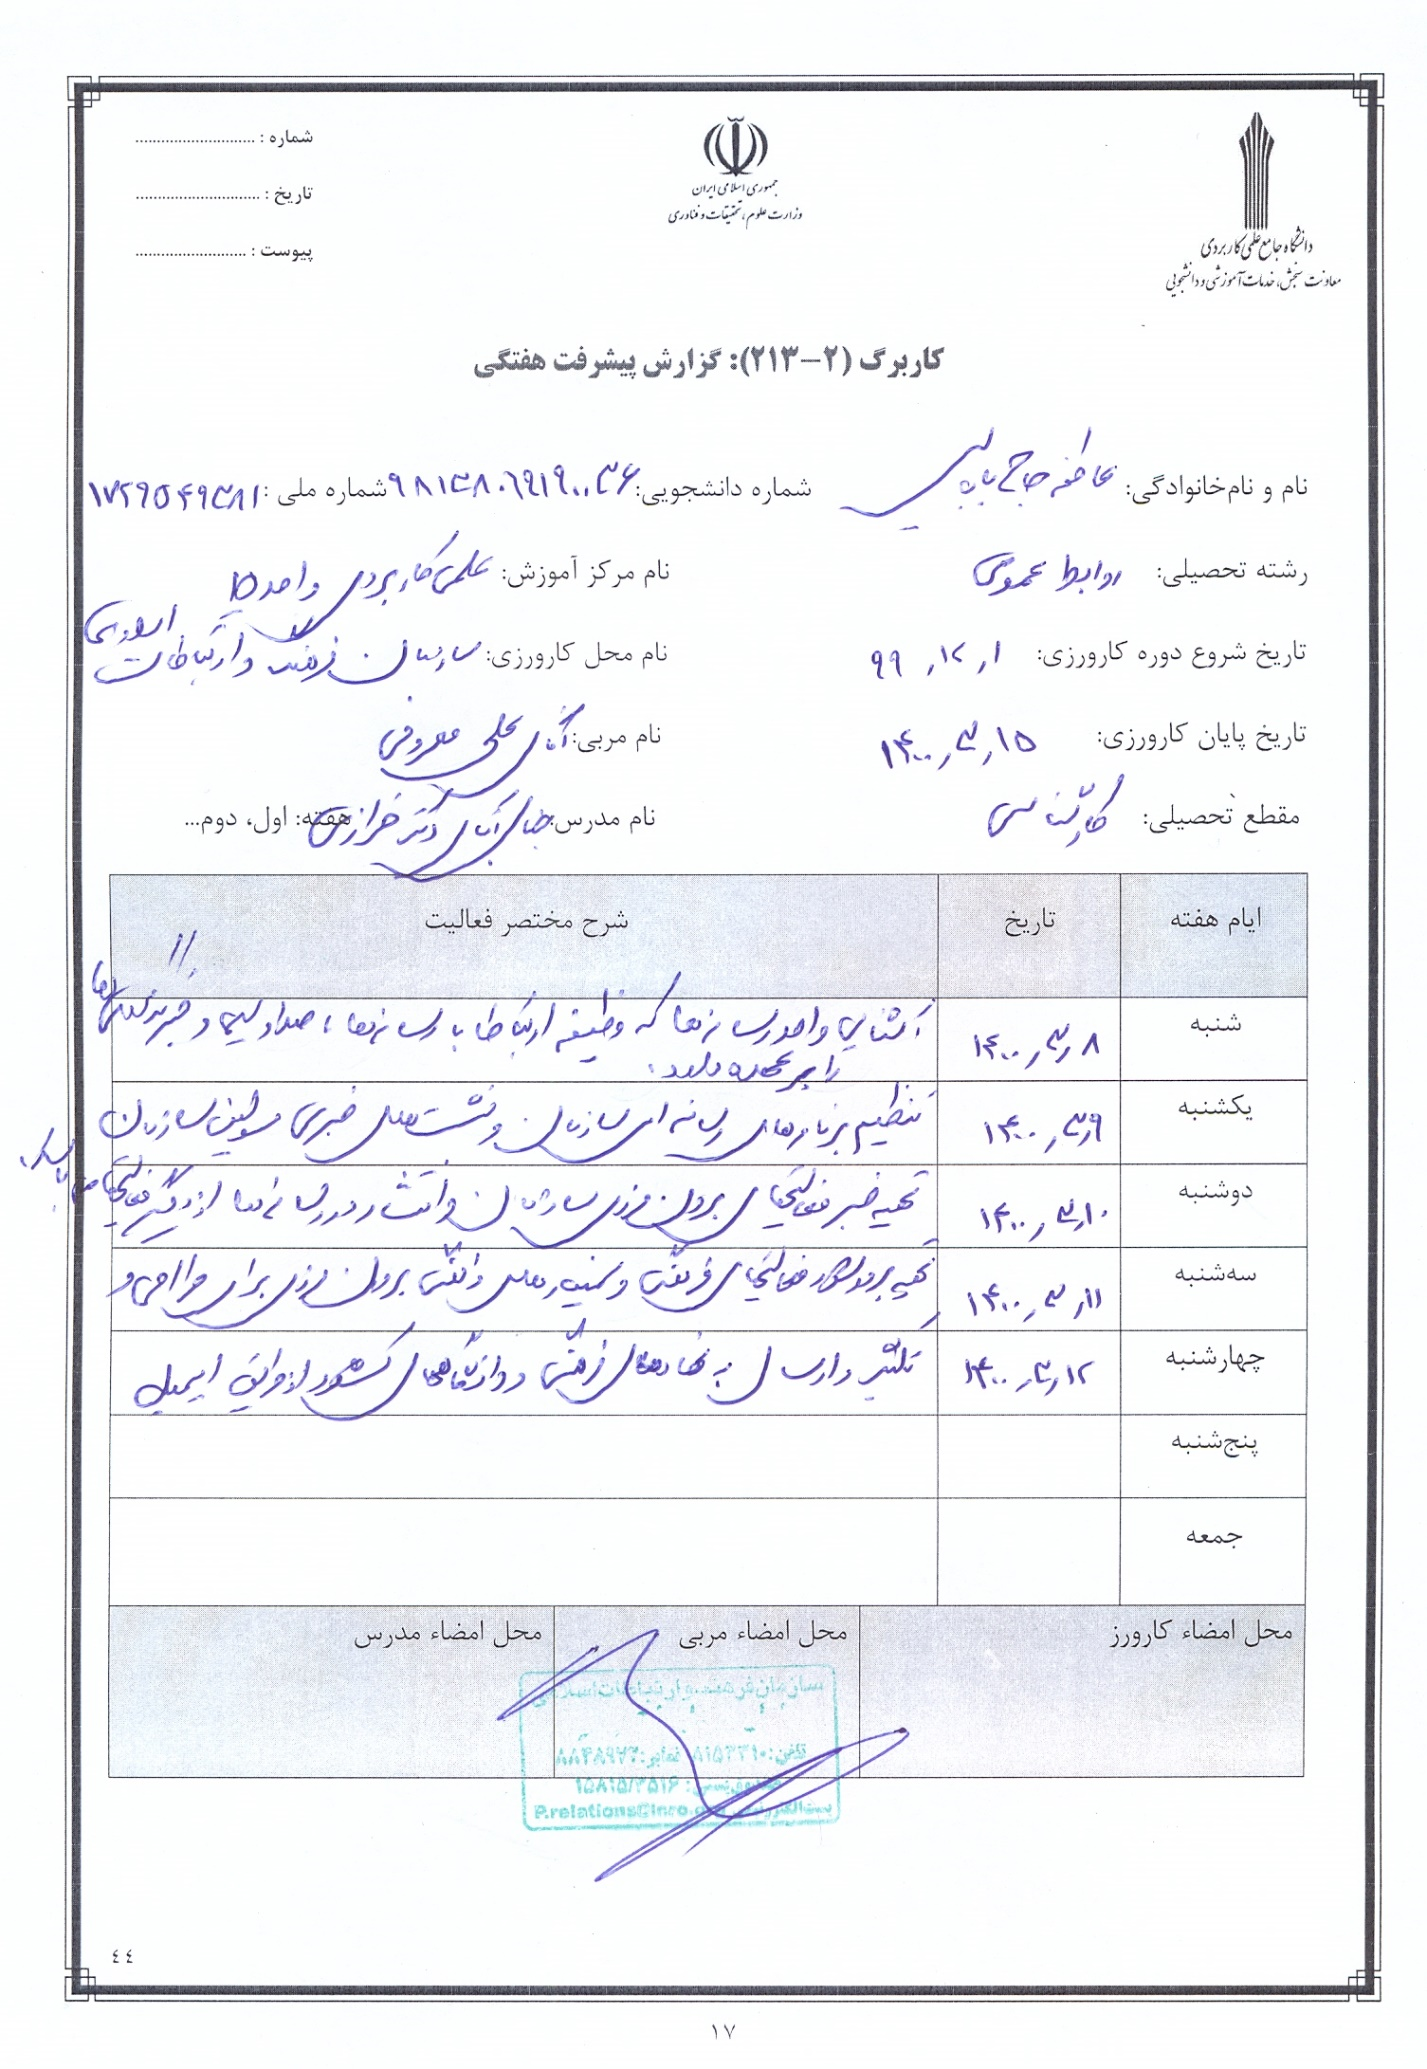 شماره : ............................
تاریخ : .............................
پیوست : ..........................
جمهوری اسلامی ایران
وزارت علوم، تحقیقات و فناوری
دانشگاه جامع علمی کاربردی
معاونت سنجش، خدمات آموزشی و دانشجویی
کاربرگ (۲-۲۱۳): گزارش پیشرفت هفتگی
نام و نام‌خانوادگی: عاطفه حاج بابایی شماره دانشجویی: شماره ملی :
رشته تحصیلی: روابط عمومی نام مرکز آموزش: علمی کاربردی واحد ۱۵
تاریخ شروع دوره کارورزی: ۹۹,۱۲,۱ نام محل کارورزی: سازمان فرهنگ و ارتباطات اسلامی
تاریخ پایان کارورزی: ۱۴۰۰,۳,۱۵ نام مربی: آقای علی معروفی
مقطع تحصیلی: کارشناسی نام مدرس: جناب آقای دکتر خرازی هفته: اول، دوم...
ایام هفته تاریخ شرح مختصر فعالیت
۱۱
شنبه ۱۴۰۰,۳,۸ آشنایی واحد رسانه‌ها که وظیفه ارتباط با رسانه‌ها، صدا و سیما و خبرگزاریها
را بر عهده دارد.
یکشنبه ۱۴۰۰,۳,۹ تنظیم برنامه‌های رسانه ای سازمان و نشست‌های خبری مسولین سازمان
دوشنبه ۱۴۰۰,۳,۱۰ تهیه خبر فعالیتهای برون مرزی سازمان و انتشار در رسانه‌ها از دیگر فعالیتها می باشد.
سه‌شنبه ۱۴۰۰,۳,۱۱ تهیه فعالیتهای فرهنگی و سمینارهای برون مرزی برای طراحی و
چهارشنبه ۱۴۰۰,۳,۱۲ تکثیر و ارسال به نهادهای فرهنگی و دانشگاههای کشور از طریق ایمیل
پنج‌شنبه
جمعه
محل امضاء کارورز محل امضاء مربی محل امضاء مدرس
سازمان فرهنگ و ارتباطات اسلامی
تلفن: نمابر:
صندوق پستی: ۱۵۸۱۵/۳۵۱۶
پست الکترونیکی P.relations@icro.
٤٤
۱۷